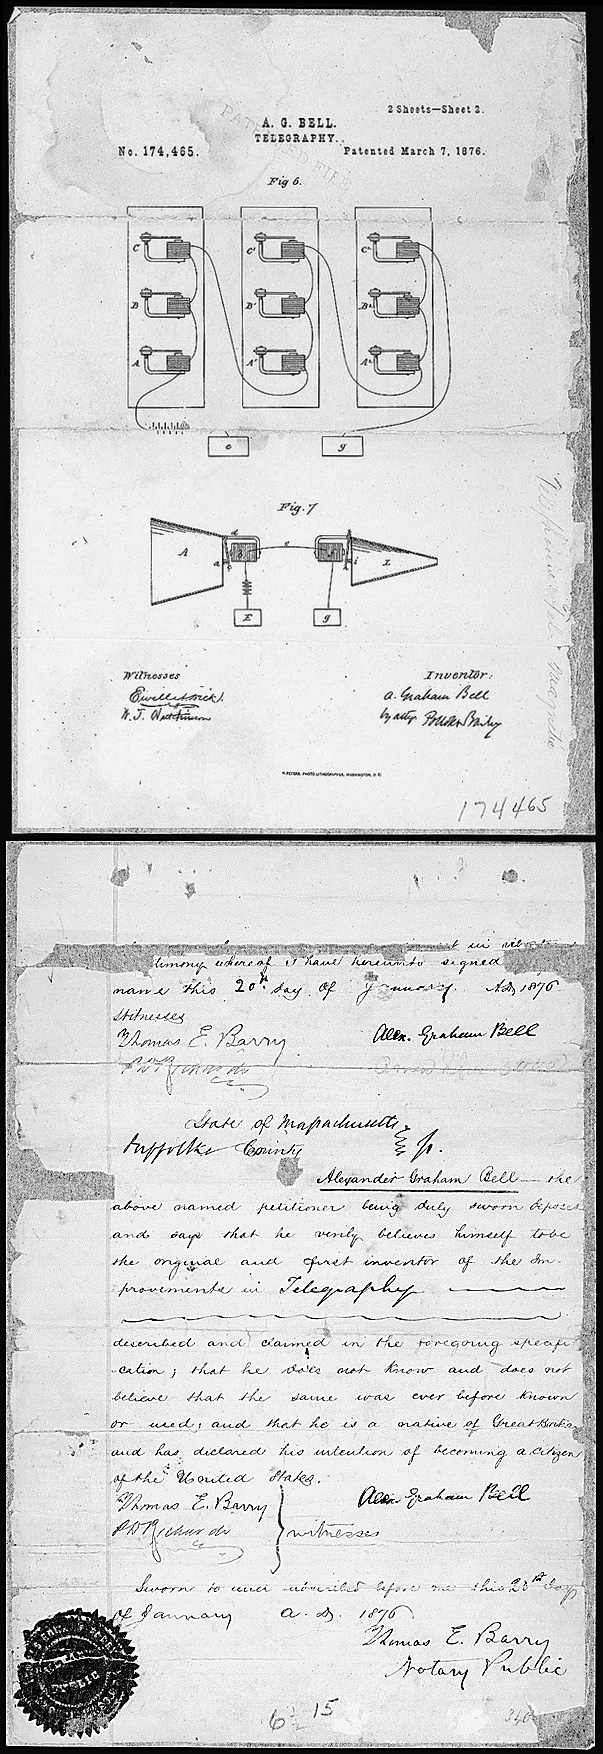 2 Sheets—Sheet 2.
A. G. BELL.
TELEGRAPHY.
No. 174,465.
Patented March 7, 1876.
Fig 6.
C C' C²
B B' B²
A A' A²
e g
Fig. 7
A a b d e i L
E g
Witnesses
Inventor:
A. Graham Bell
W. J. Hutchinson
by atty Pollok & Bailey
N. PETERS, PHOTO-LITHOGRAPHER, WASHINGTON, D. C.
174465
timony whereof I have hereunto signed
name this 20th day of January A.D. 1876
Witnesses
Thomas E. Barry
Alex. Graham Bell
P. D. Richards
State of Massachusetts
Suffolk County ss.
Alexander Graham Bell the
above named petitioner being duly sworn deposes
and says that he verily believes himself to be
the original and first inventor of the Im-
provements in Telegraphy
described and claimed in the foregoing specifi
-cation; that he does not know and does not
believe that the same was ever before known
or used; and that he is a native of Great Britain
and has declared his intention of becoming a citizen
of the United States.
Thomas E. Barry
Alex. Graham Bell
P. D. Richards
witnesses
Sworn to and subscribed before me this 20th day
of January A. D. 1876.
Thomas E. Barry
Notary Public
15